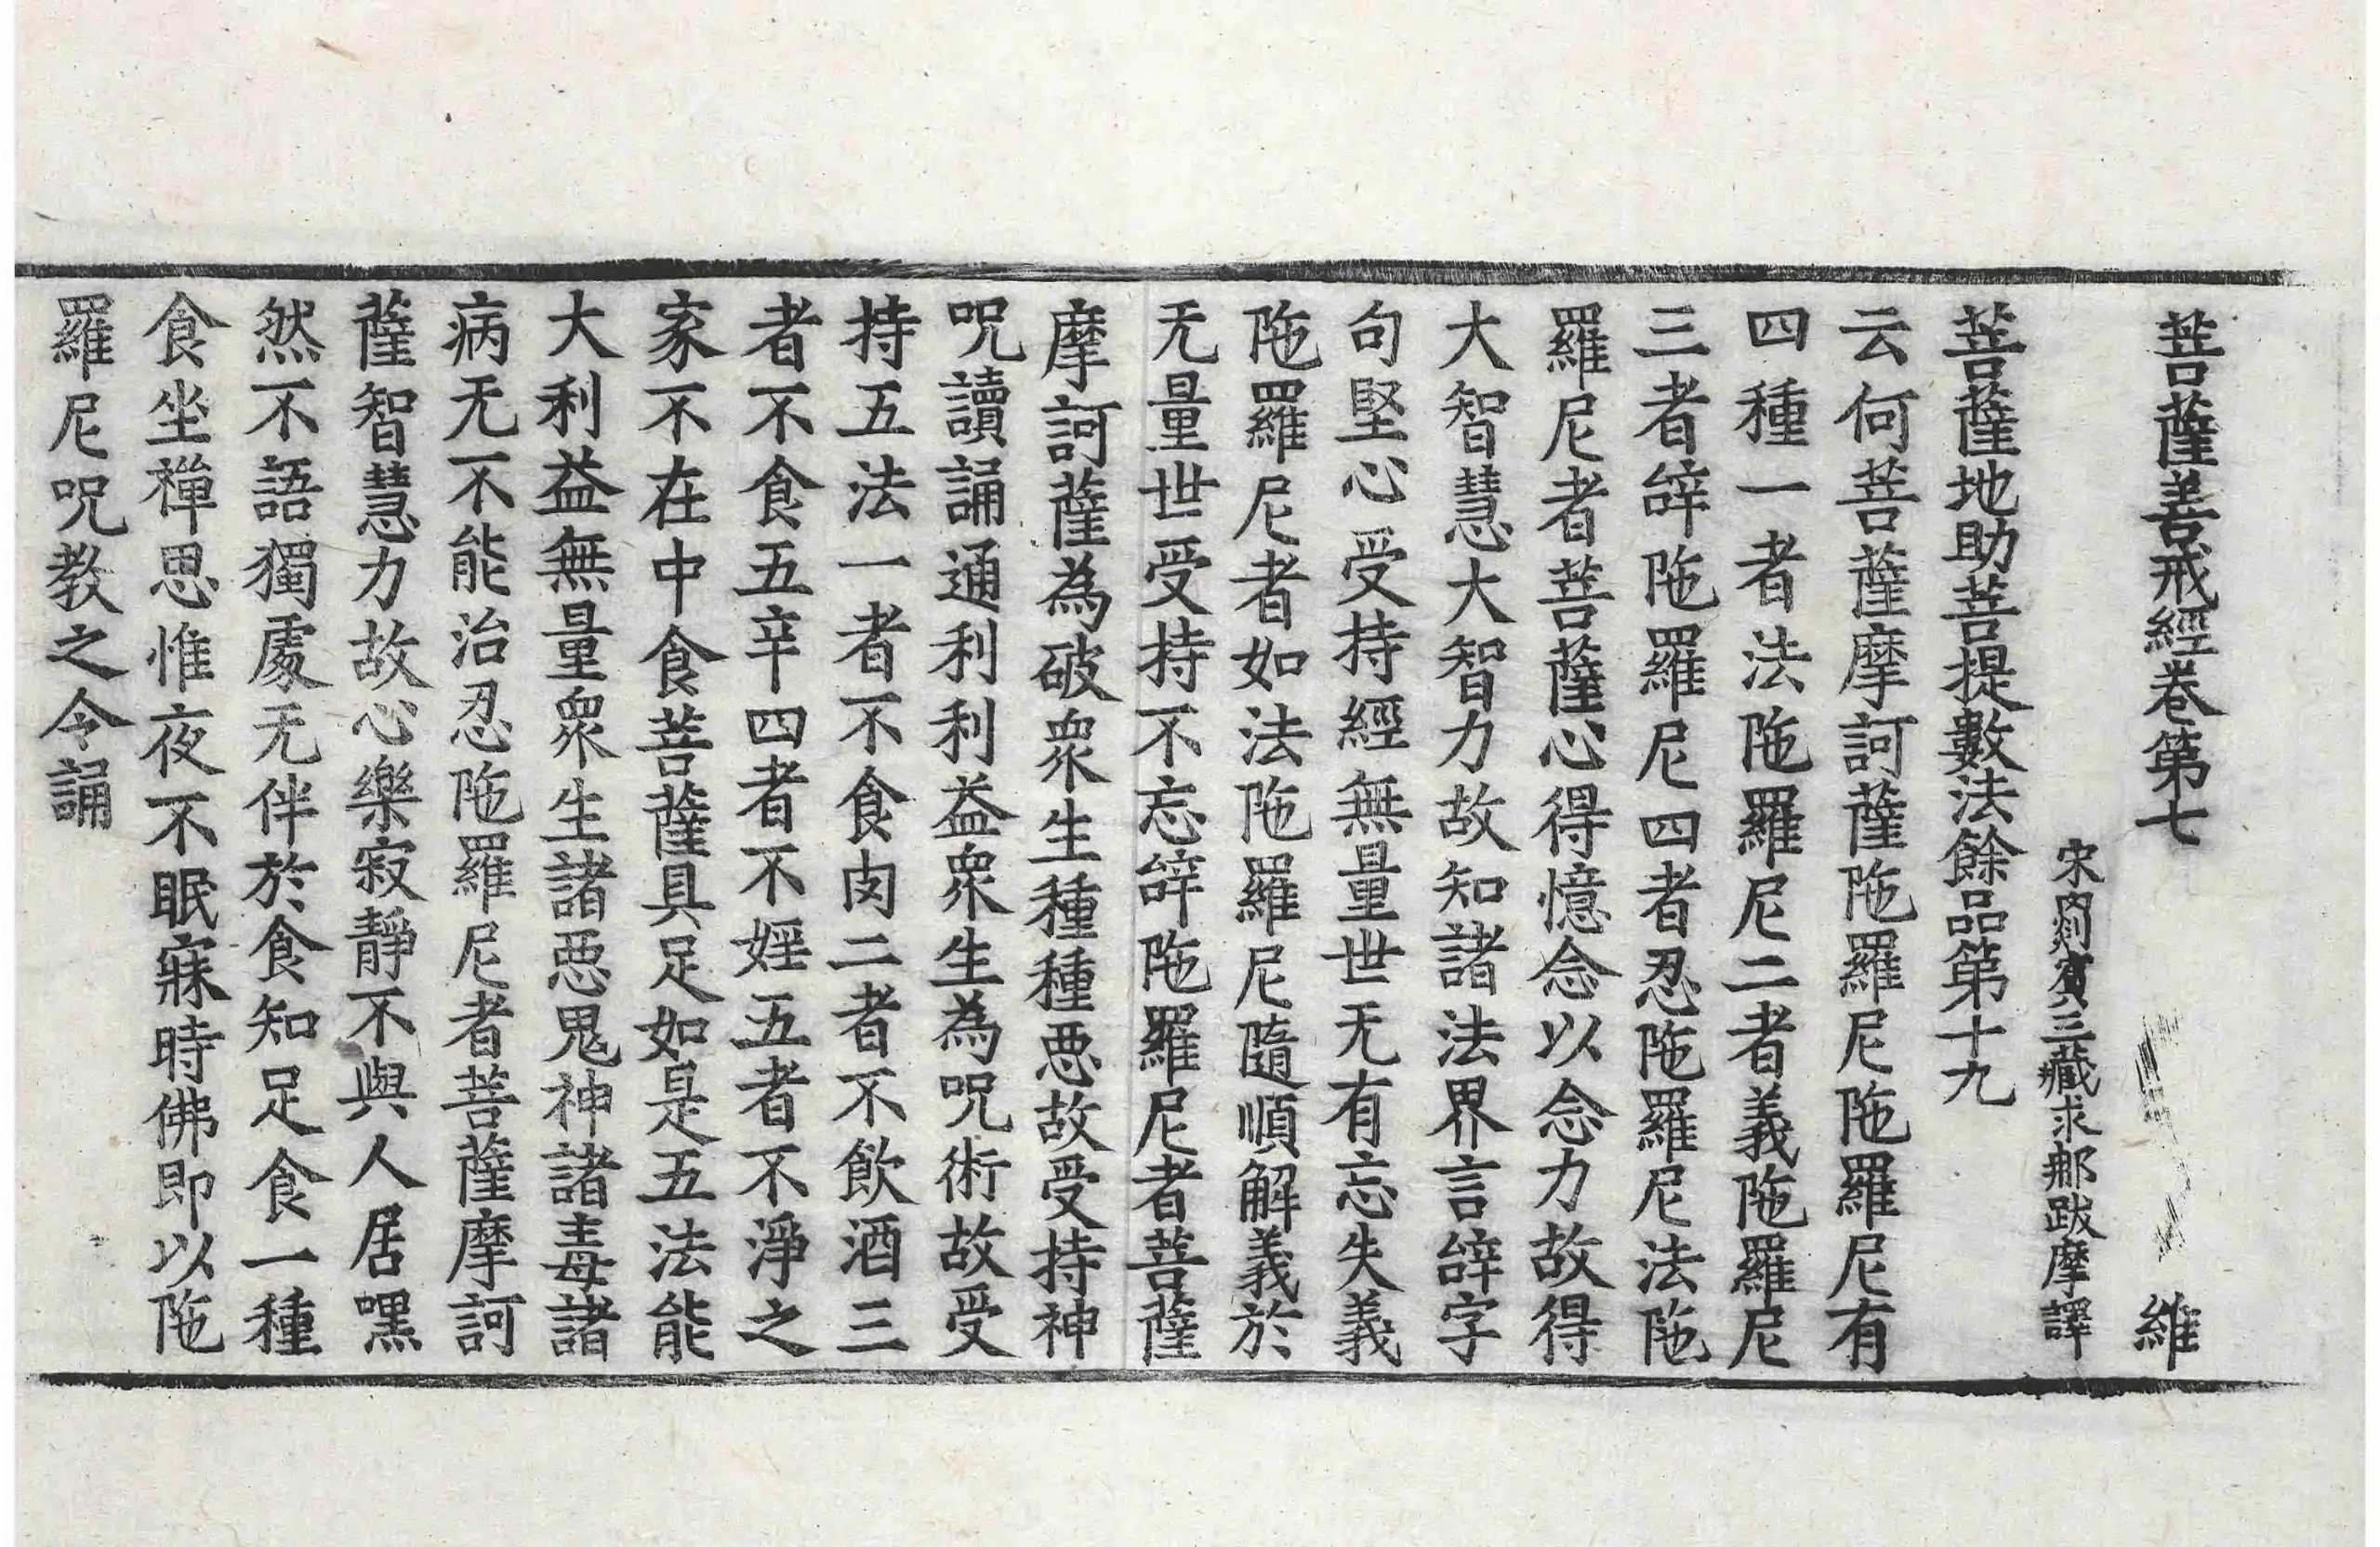 菩薩善戒經卷第七 維
宋罽賓三藏求那跋摩譯
菩薩地助菩提數法餘品第十九
云何菩薩摩訶薩陁羅尼陁羅尼有
四種一者法陁羅尼二者義陁羅尼
三者辝陁羅尼四者忍陁羅尼法陁
羅尼者菩薩心得憶念以念力故得
大智慧大智力故知諸法界言辝字
句堅心受持經無量世无有忘失義
陁羅尼者如法陁羅尼隨順解義於
无量世受持不忘辝陁羅尼者菩薩
摩訶薩為破衆生種種惡故受持神
呪讀誦通利利益衆生為呪術故受
持五法一者不食肉二者不飲酒三
者不食五辛四者不婬五者不淨之
家不在中食菩薩具足如是五法能
大利益無量衆生諸惡鬼神諸毒諸
病无不能治忍陁羅尼者菩薩摩訶
薩智慧力故心樂寂靜不與人居嘿
然不語獨處无伴於食知足食一種
食坐禪思惟夜不眠寐時佛即以陁
羅尼呪教之令誦